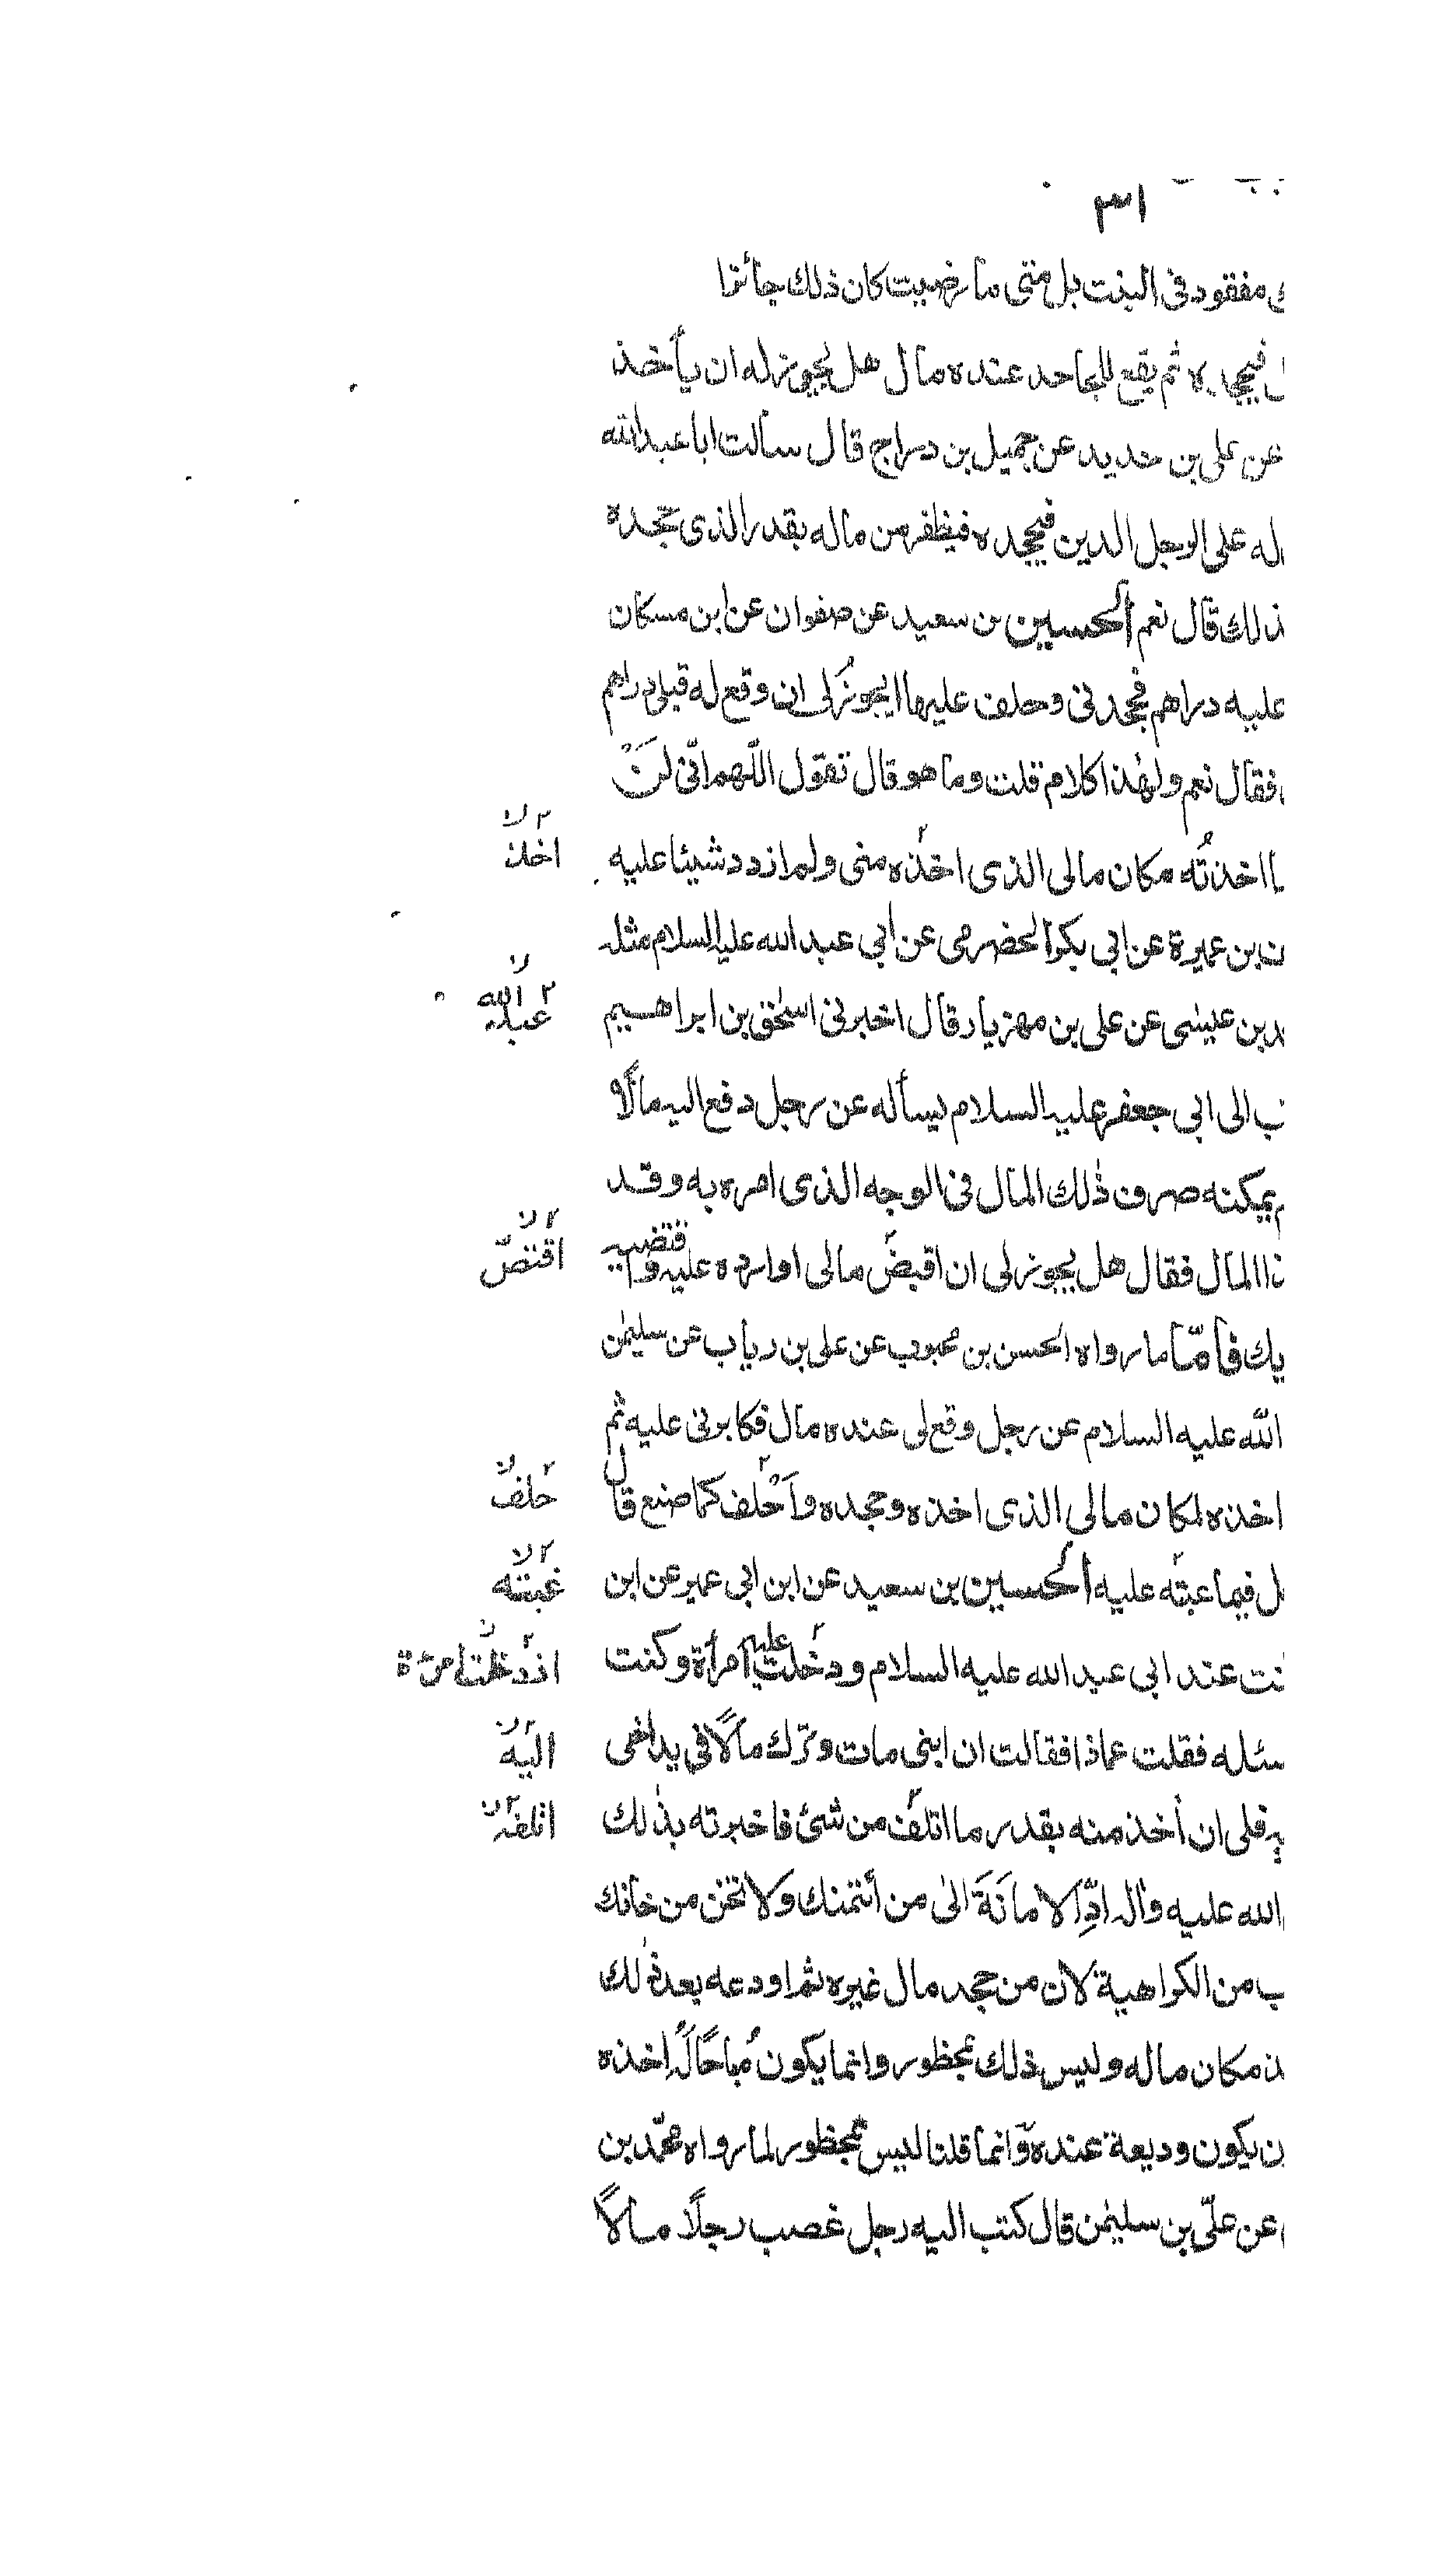 ٣١
مفقود فى البنت بل متى ما رضيت كان ذلك جائزا
فيجحده ثم يقع للجاحد عنده مال هل يجوز له ان يأخذ
عن على بن حديد عن جميل بن دراج قال سألت ابا عبدالله
له على الرجل الدين فيجحده فيظفر من ماله بقدر الذى جحده
ذلك قال نعم الحسين بن سعيد عن صفوان عن ابن مسكان
عليه دراهم فجحدنى وحلف عليها ايجوز لى ان وقع له قبلى دراهم
فقال نعم ولهذا كلام قلت وما هو قال تقول اللّهم انّى لَنْ
اخذتُه مكان مالى الذى اخذه منى ولم ازدد شيئا عليه
اخذ
بن عميرة عن ابى بكر الحضرمى عن أبى عبد الله عليه السلام مثله
بن عيسى عن على بن مهزيار قال اخبرنى اسحٰق بن ابراهيم
عبد الله
الى ابى جعفر عليه السلام يسأله عن رجل دفع اليه مالًا
يمكنه صرف ذٰلك المال فى الوجه الذى امره به وقد
المال فقال هل يجوز لى ان اقبض مالى او ارده عليه و اقتضيه
اقتصّ
فأمّا ما رواه الحسن بن محبوب عن على بن رياب عن سليمٰن
الله عليه السلام عن رجل وقع لى عنده مال فكابرنى عليه ثم
اخذه لمكان مالى الذى اخذه وجحده وأَحْلف كما صنع قال
حلف
فيما عبته عليه الحسين بن سعيد عن ابن ابى عمير عن ابن
عبته
عند ابى عبد الله عليه السلام ودخلت عليه امرأة وكنت
اذ دخلت امرءة
سئله فقلت عماذا فقالت ان ابنى مات وترك مالًا فى يد اخى
اليه
فلى ان أخذ منه بقدر ما اتلف من شئ فاخبرته بذٰلك
اتلفه
الله عليه واٰله ادِّ الامانَةَ الى من أئتمنك ولا تخن من خانك
من الكراهية لان من جحد مال غيره ثم اودعه بعد ذٰلك
مكان ماله وليس ذلك بمحظور وانما يكون مُباحًا لَه اخذه
يكون وديعة عنده وانما قلنا ليس بمحظور لما رواه محمّد بن
عن علىّ بن سليمٰن قال كتب اليه رجل غصب رجلًا مالًا